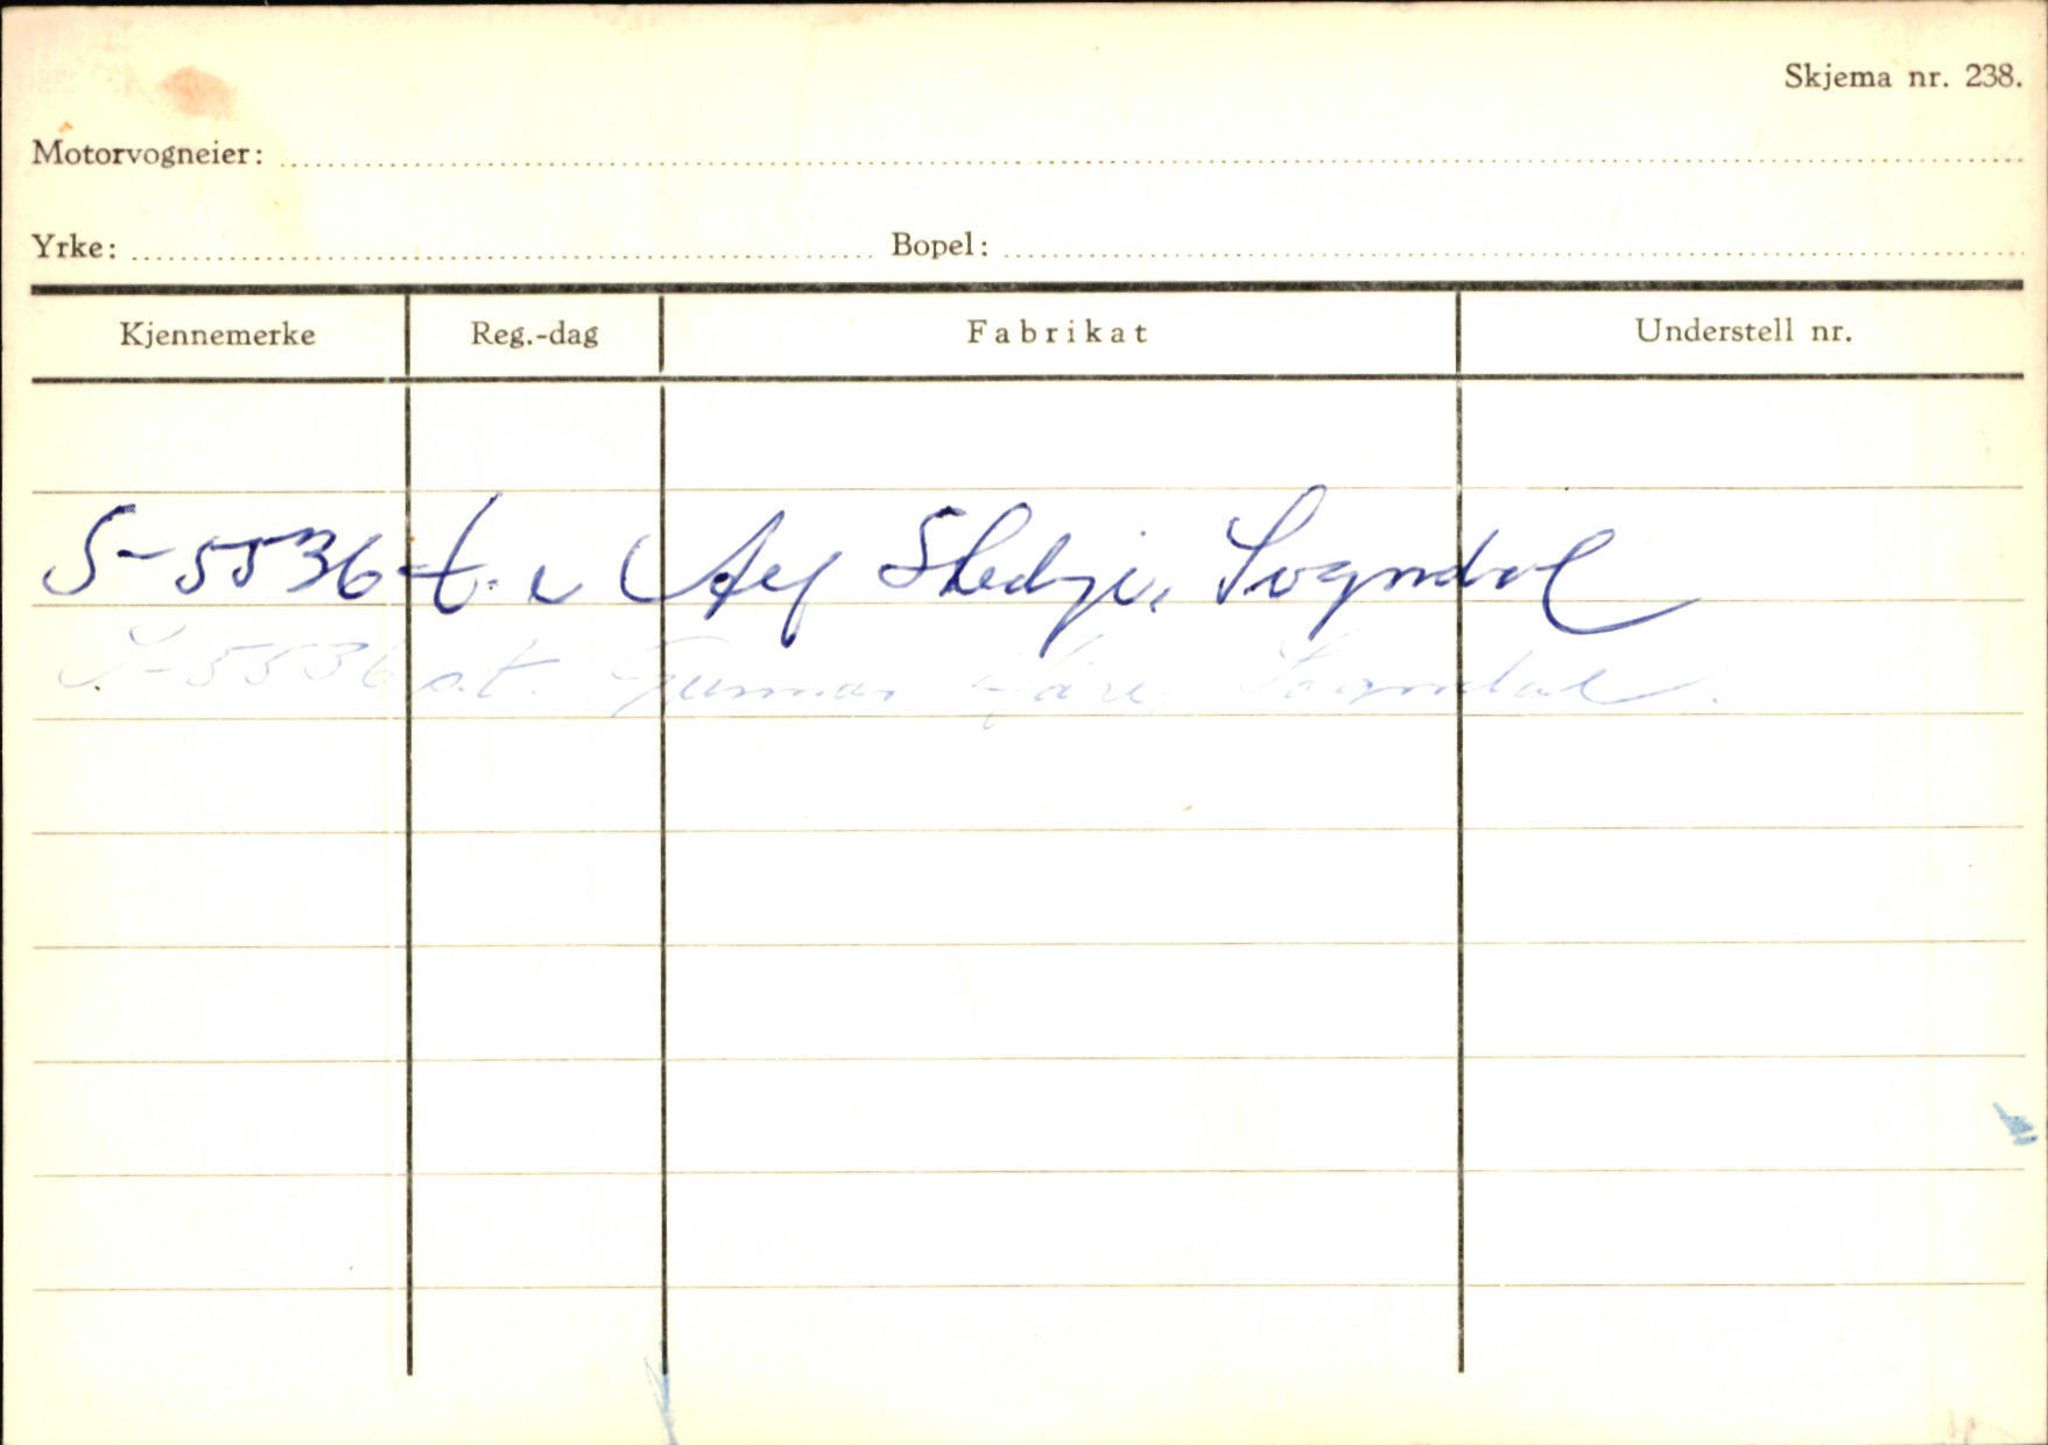 Skjema nr. 238.
Motorvogneier:
Yrke: Bopel:
Kjennemerke Reg.-dag Fabrikat Understell nr.
S-5536 t. Alf Stedje, Sogndal
S-5536 s.t. Gunnar Sogndal.